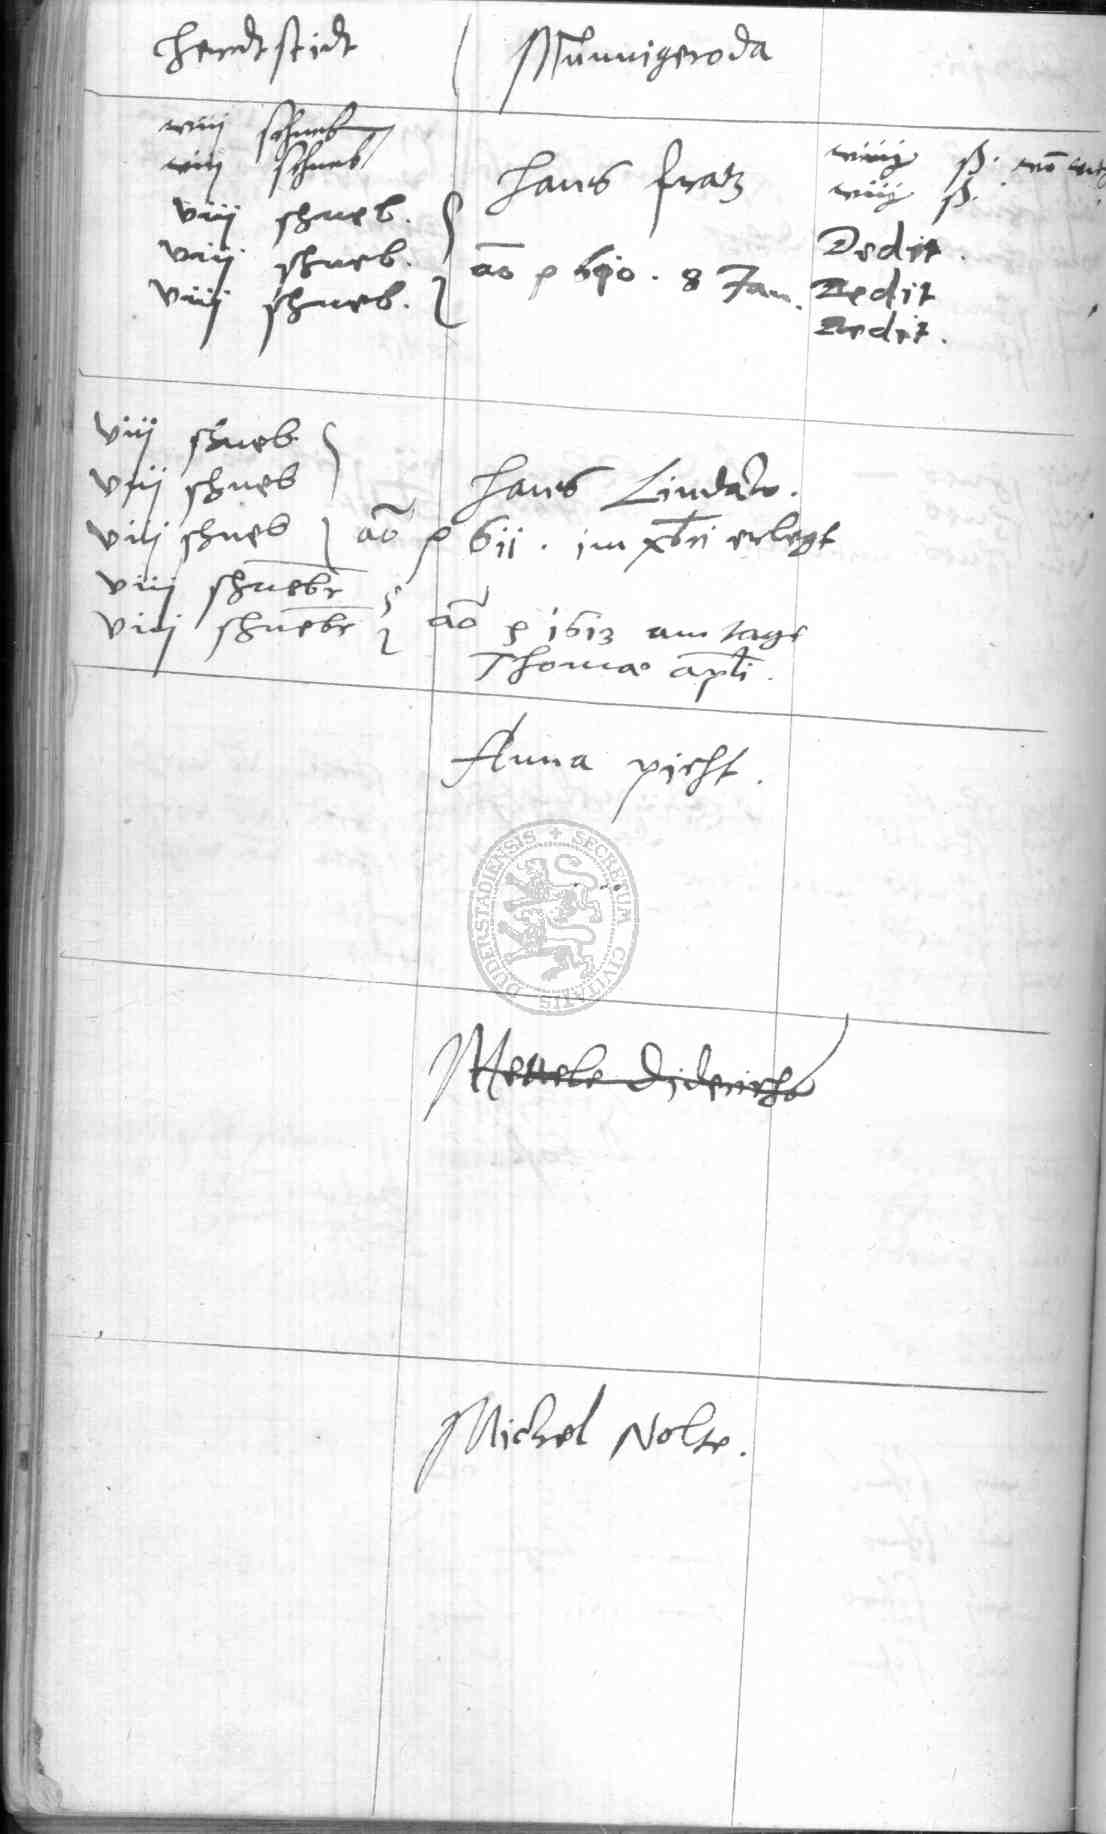 Herdtstidt Münnigeroda
viiij schneb
viiij schneb
viij schneb.
viij schneb.
viij schneb.
Hans fratz
ao p 610. 8 Jan.
viiij ß.
viiij ß.
Dedit.
Dedit
Dedit.
viij schneb
viij schneb
viij schneb
viij schnebr
viij schnebr
Hans Lindaw.
ao p 611. im xbri erlegt
ao p 1613 am tage
Thomae apli.
Anna picht.
SECRETUM CIVITATIS DUDERSTADIENSIS
Diderichs
Michel Nolte.